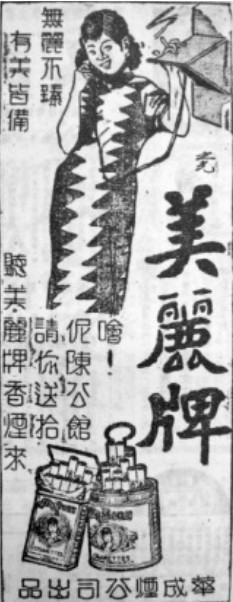 美麗牌
無麗不臻
有美皆備
噲！
伲陳公館
請你送拾
聽美麗牌香煙來
華成煙公司出品